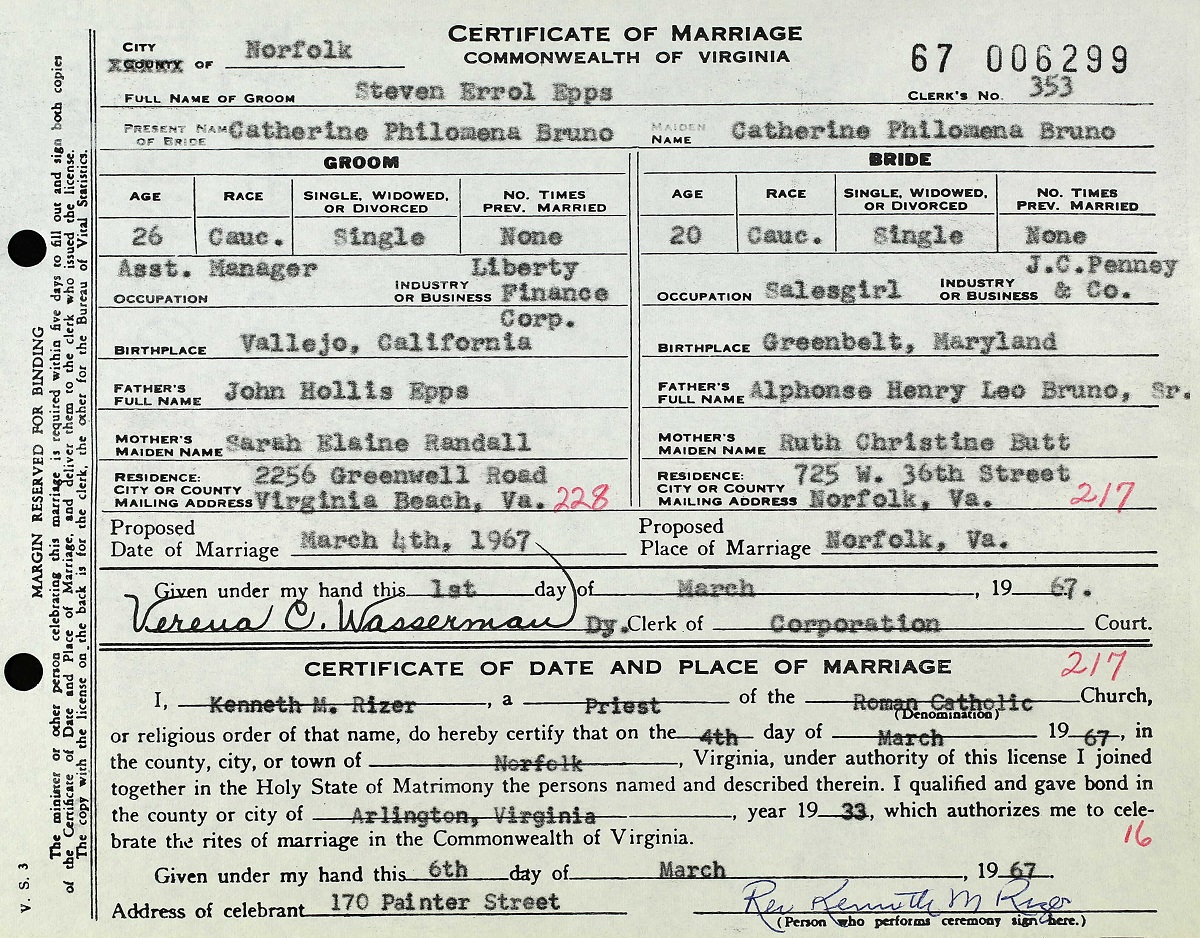 CERTIFICATE OF MARRIAGE
COMMONWEALTH OF VIRGINIA
CITY
COUNTY OF Norfolk
67 006299
FULL NAME OF GROOM Steven Errol Epps CLERK'S NO. 353
PRESENT NAME OF BRIDE Catherine Philomena Bruno MAIDEN NAME Catherine Philomena Bruno
GROOM BRIDE
AGE RACE SINGLE, WIDOWED, OR DIVORCED NO. TIMES PREV. MARRIED AGE RACE SINGLE, WIDOWED, OR DIVORCED NO. TIMES PREV. MARRIED
26 Cauc. Single None 20 Cauc. Single None
OCCUPATION Asst. Manager INDUSTRY OR BUSINESS Liberty Finance Corp. OCCUPATION Salesgirl INDUSTRY OR BUSINESS J.C.Penney & Co.
BIRTHPLACE Vallejo, California BIRTHPLACE Greenbelt, Maryland
FATHER'S FULL NAME John Hollis Epps FATHER'S FULL NAME Alphonse Henry Leo Bruno, Sr.
MOTHER'S MAIDEN NAME Sarah Elaine Randall MOTHER'S MAIDEN NAME Ruth Christine Butt
RESIDENCE: 2256 Greenwell Road RESIDENCE: 725 W. 36th Street
CITY OR COUNTY MAILING ADDRESS Virginia Beach, Va. 228 CITY OR COUNTY MAILING ADDRESS Norfolk, Va. 217
Proposed Date of Marriage March 4th, 1967 Proposed Place of Marriage Norfolk, Va.
Given under my hand this 1st day of March, 19 67.
Verena C. Wasserman Dy. Clerk of Corporation Court.
CERTIFICATE OF DATE AND PLACE OF MARRIAGE 217
I, Kenneth M. Rizer, a Priest of the Roman Catholic Church,
(Denomination)
or religious order of that name, do hereby certify that on the 4th day of March 19 67, in
the county, city, or town of Norfolk, Virginia, under authority of this license I joined
together in the Holy State of Matrimony the persons named and described therein. I qualified and gave bond in
the county or city of Arlington, Virginia, year 19 33, which authorizes me to cele-
brate the rites of marriage in the Commonwealth of Virginia. 16
Given under my hand this 6th day of March, 19 67.
Address of celebrant 170 Painter Street Rev Kenneth M Rizer
(Person who performs ceremony sign here.)
V. S. 3
MARGIN RESERVED FOR BINDING
The minister or other person celebrating this marriage is required within five days to fill out and sign both copies
of the Certificate of Date and Place of Marriage, and deliver them to the clerk who issued the license.
The copy with the license on the back is for the clerk, the other for the Bureau of Vital Statistics.